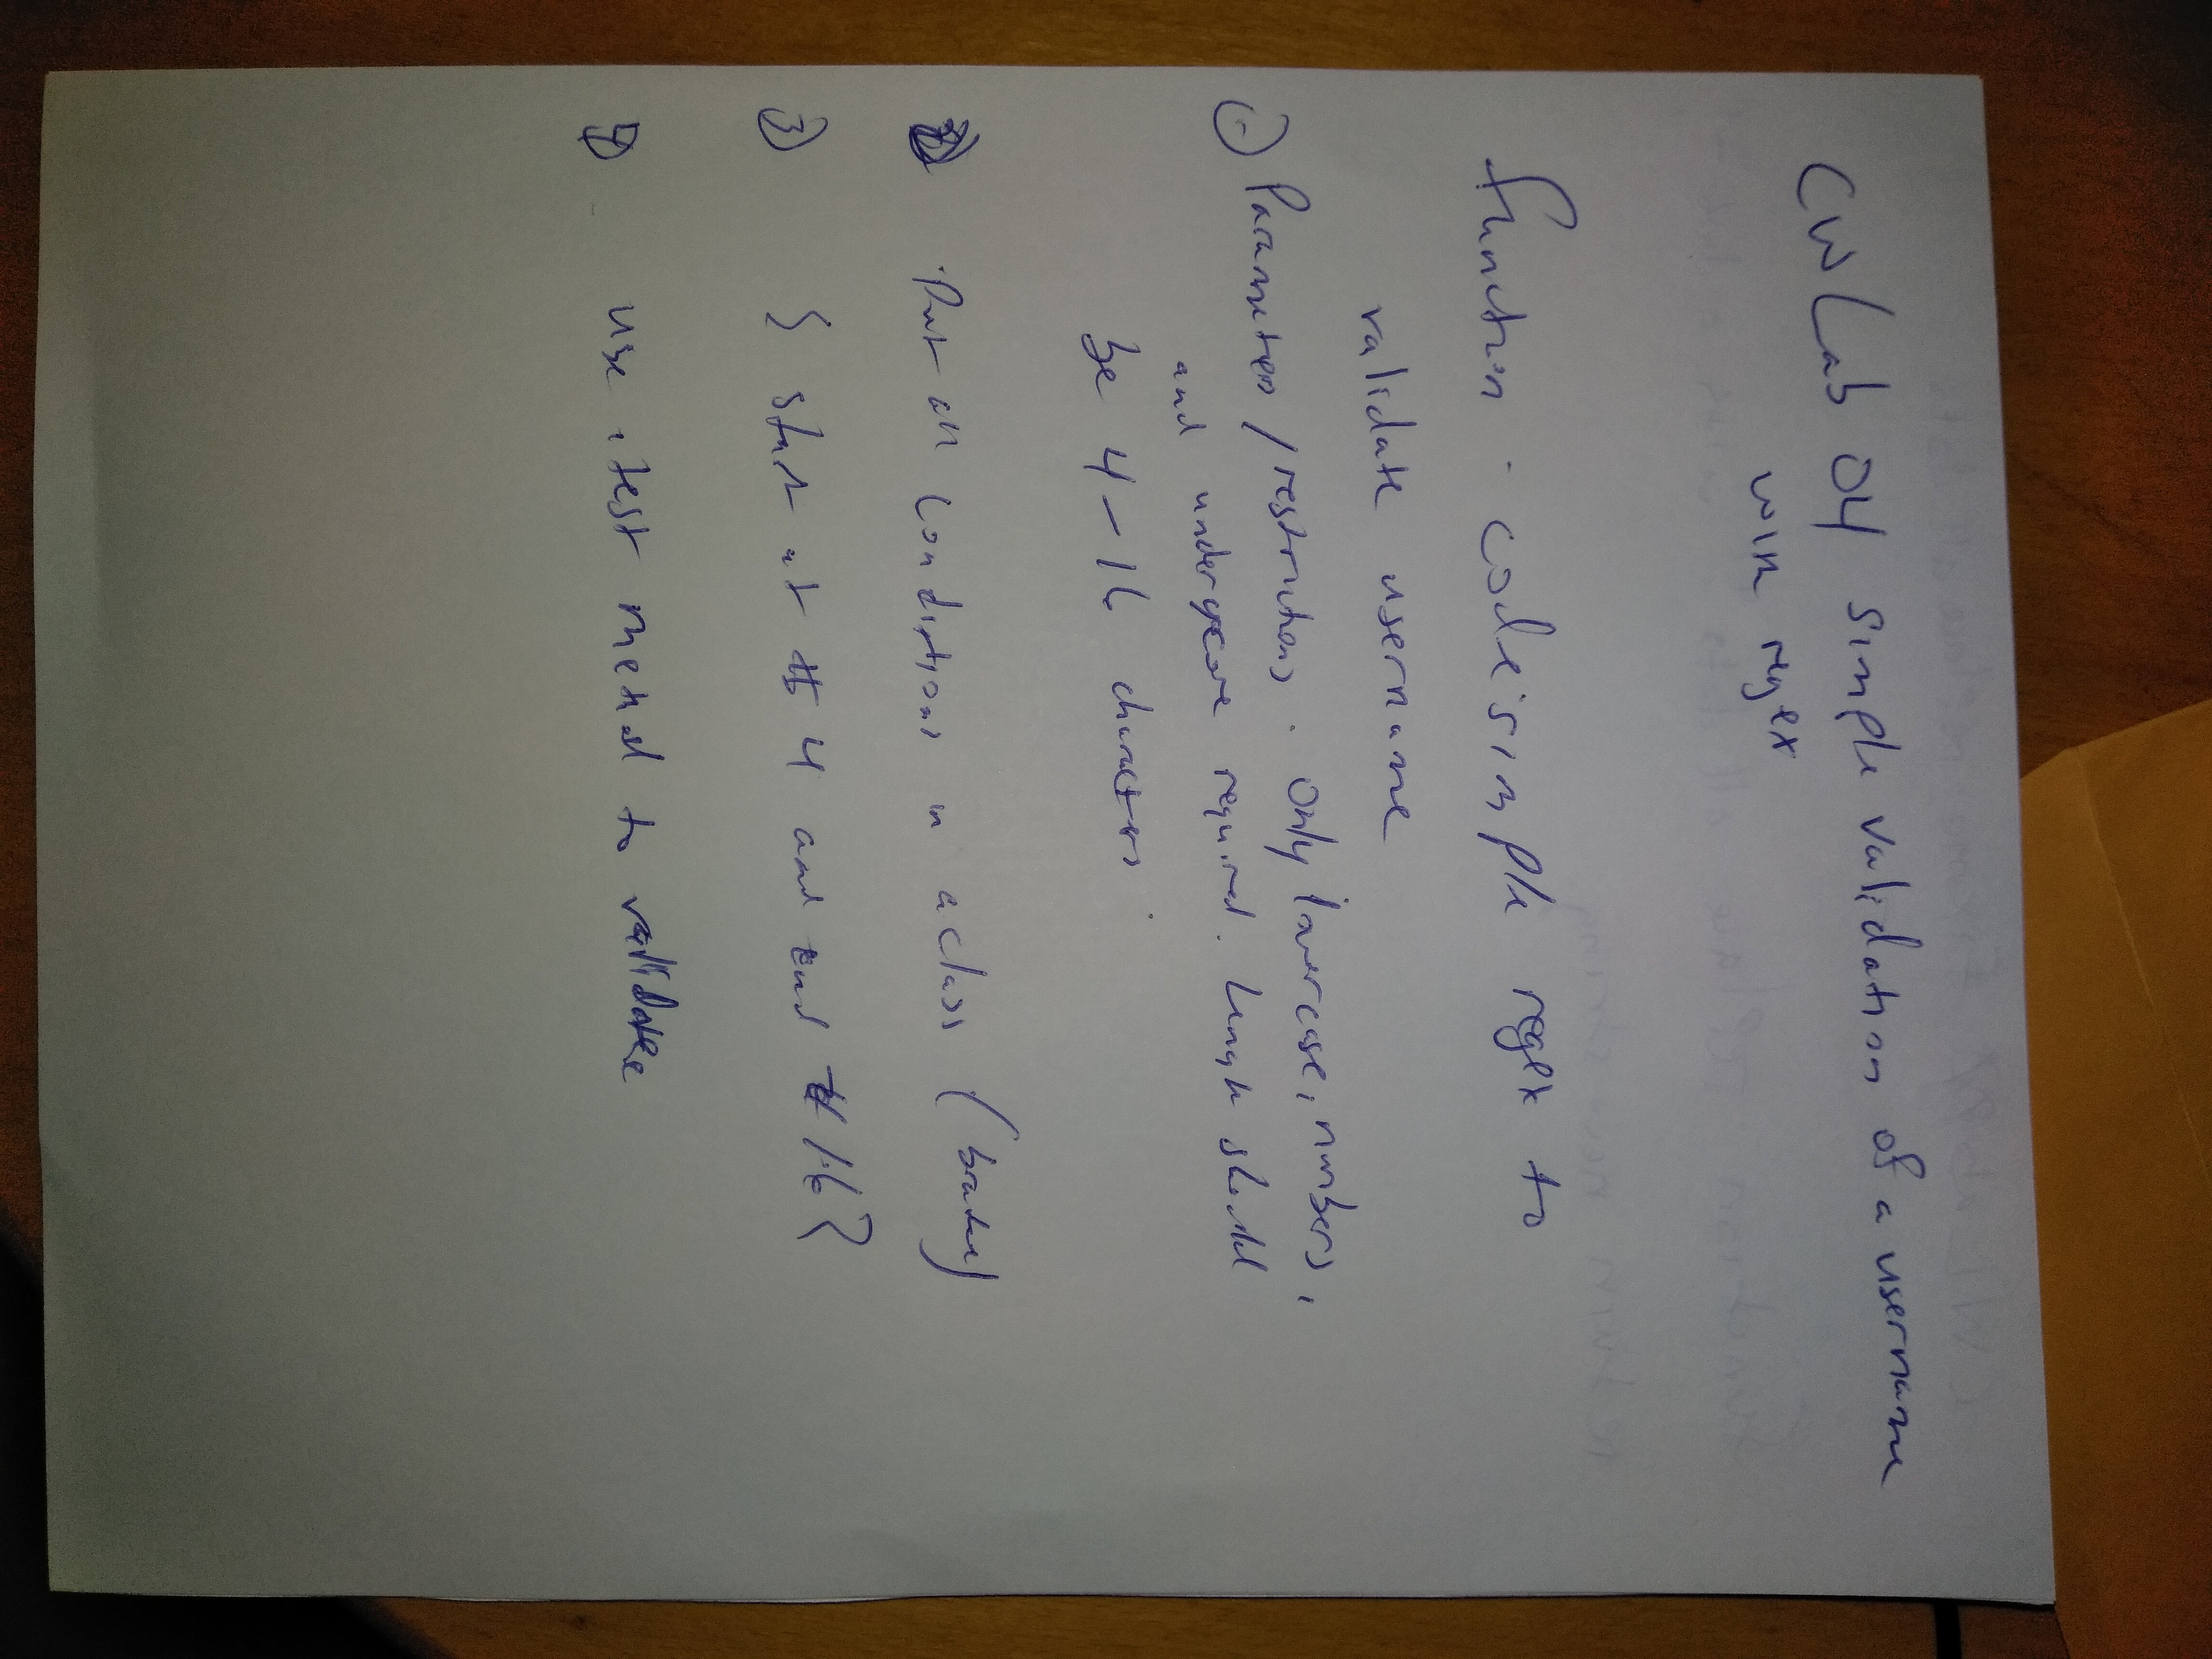 CW Lab 04 simple validation of a username
with regex
function - code simple regex to
validate username
① Parameters / restrictions. Only lowercase, numbers,
and underscore required. Length should
be 4-16 characters
② Put all conditions in a class (bracket)
③ { start at 4 and end 16 }
④ use .test method to validate